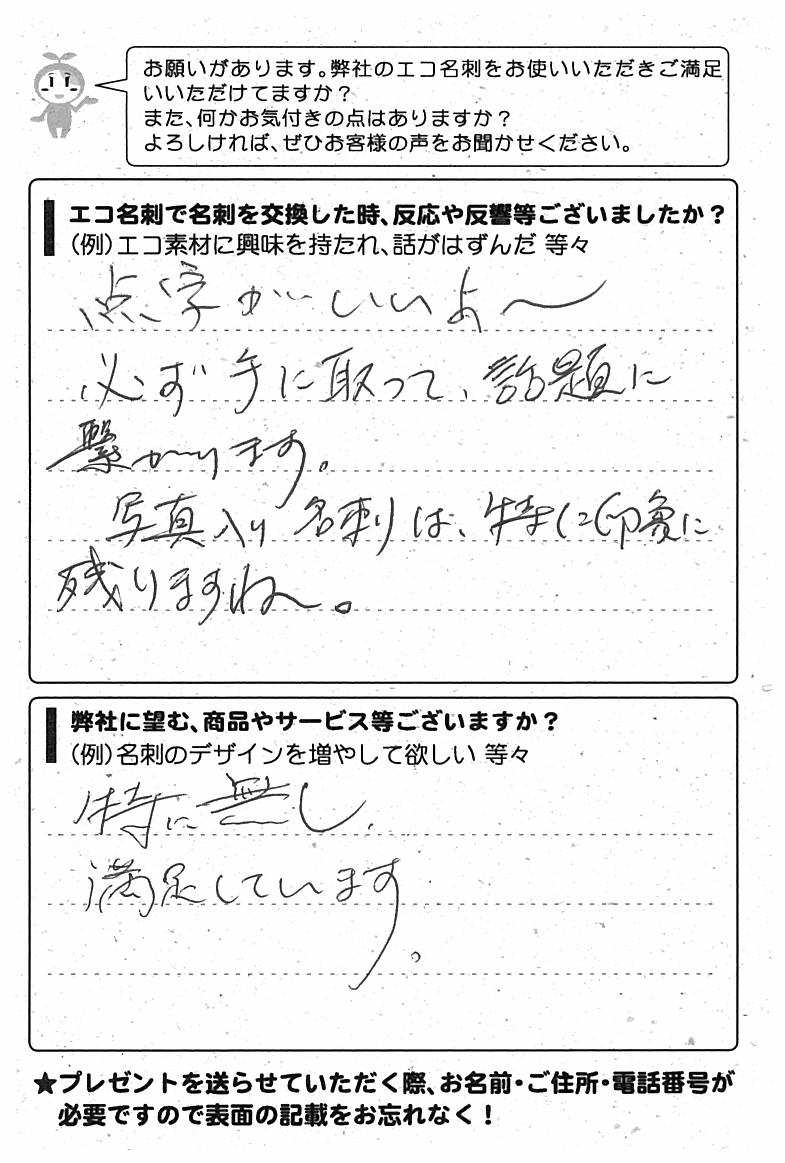 お願いがあります。弊社のエコ名刺をお使いいただきご満足
いいただけてますか？
また、何かお気付きの点はありますか？
よろしければ、ぜひお客様の声をお聞かせください。
エコ名刺で名刺を交換した時、反応や反響等ございましたか？
（例）エコ素材に興味を持たれ、話がはずんだ 等々
点字がいいよ〜
必ず手に取って、話題に
繋がります。
写真入り名刺は、特に印象に
残りますね〜。
弊社に望む、商品やサービス等ございますか？
（例）名刺のデザインを増やして欲しい 等々
特に無し、
満足しています。
★プレゼントを送らせていただく際、お名前・ご住所・電話番号が
必要ですので表面の記載をお忘れなく！